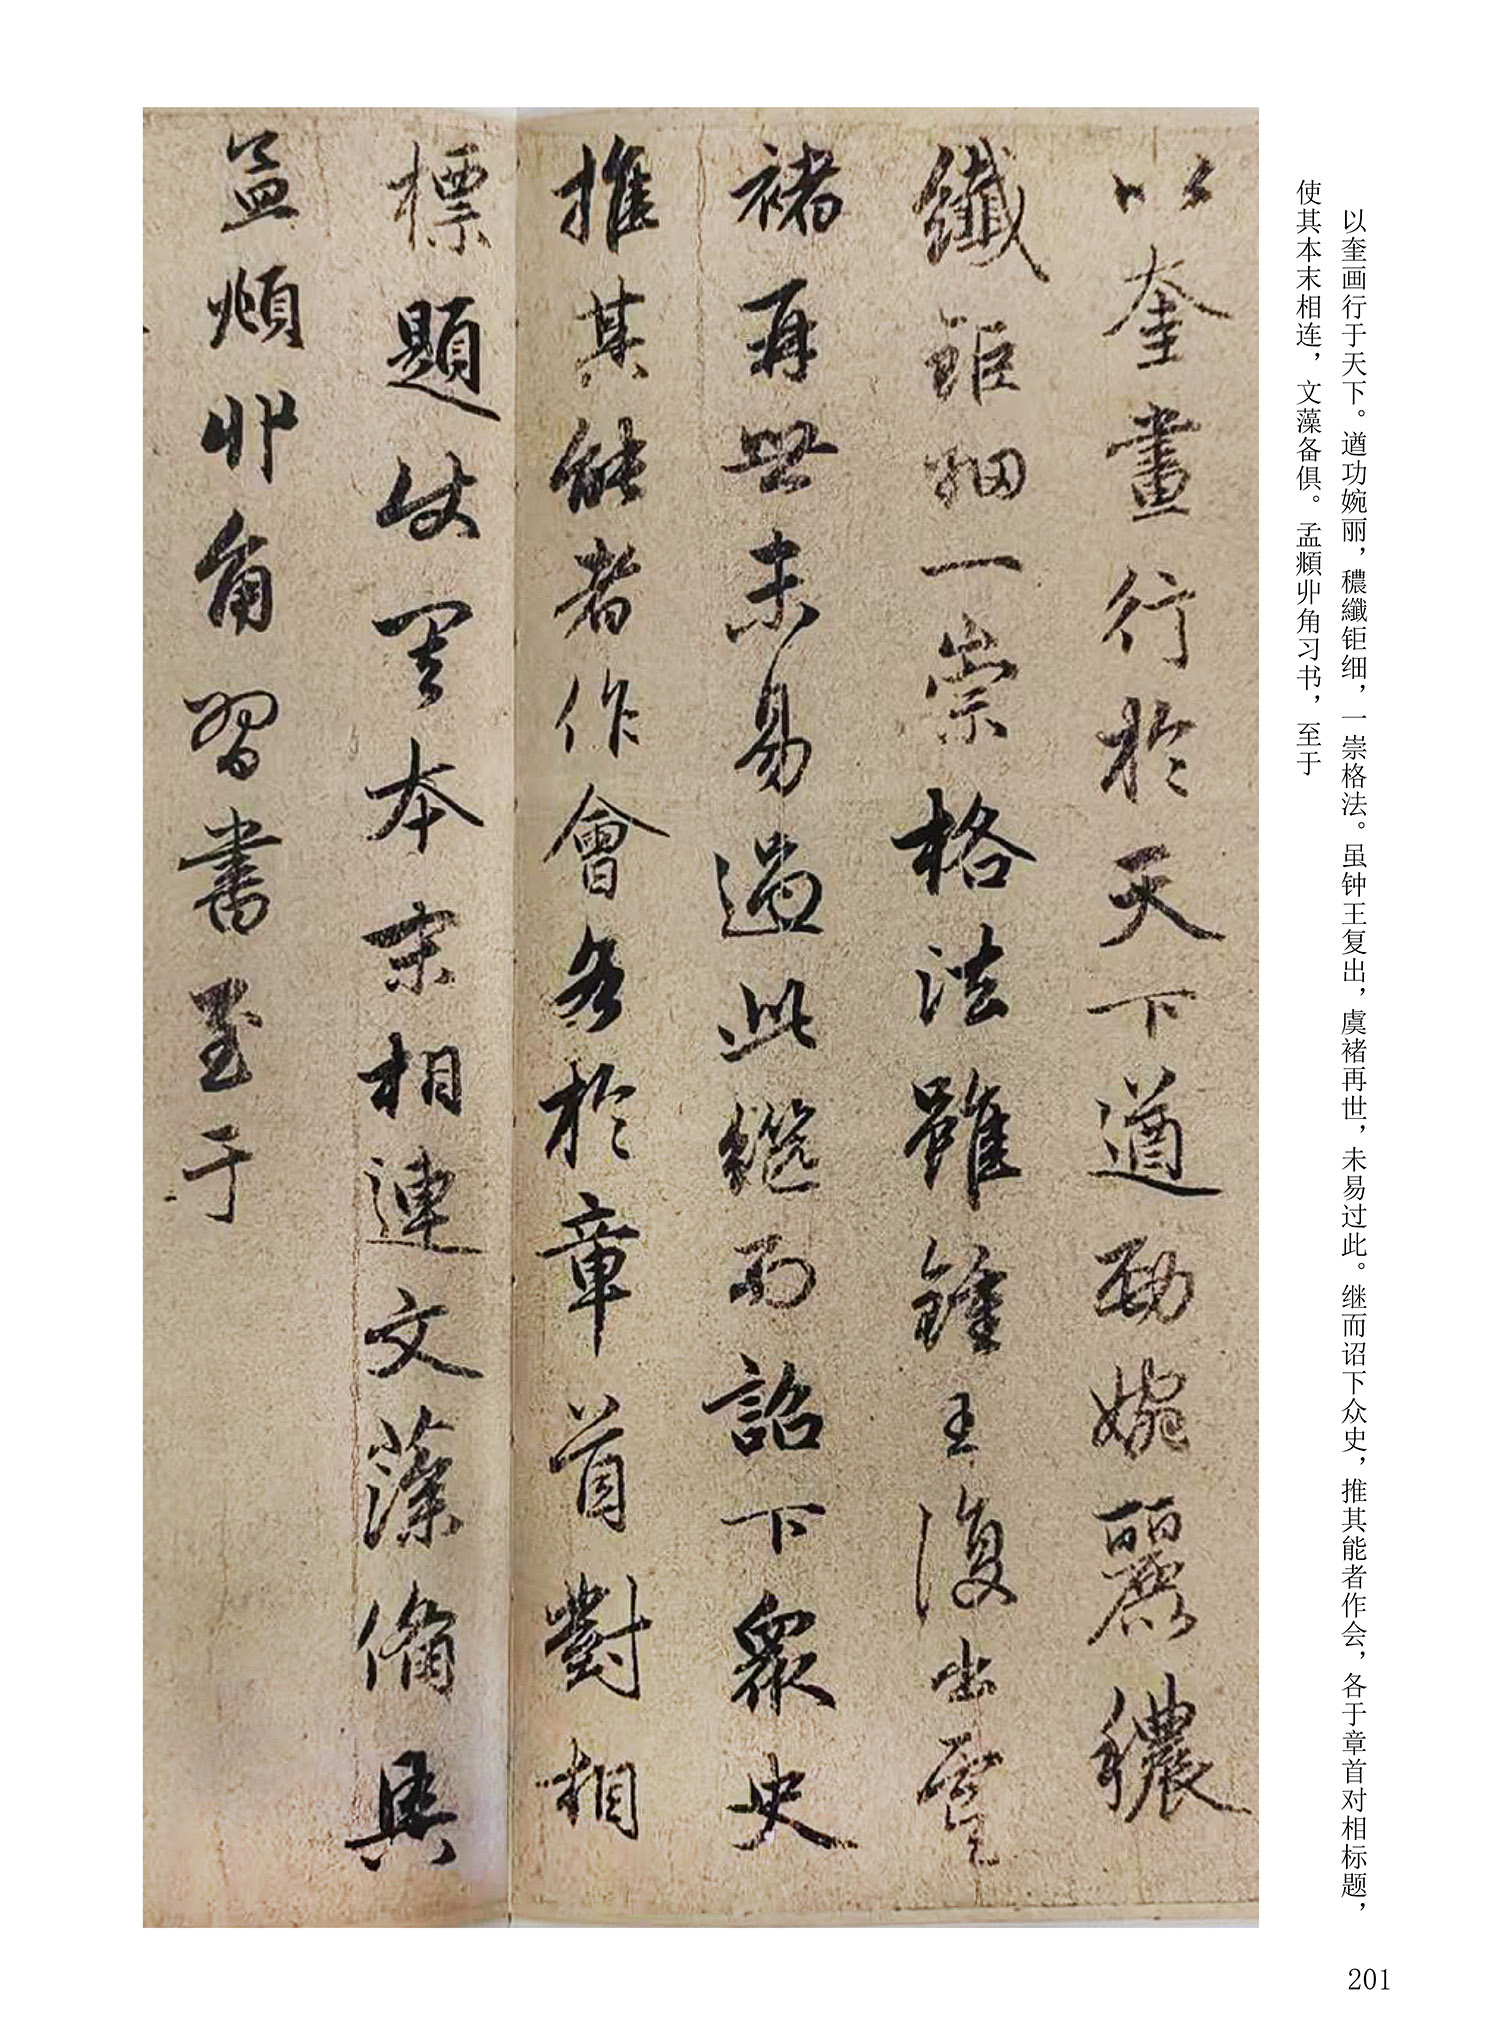 以奎画行于天下。遒功婉丽，穠纖钜细，一崇格法。虽钟王复出，虞褚再世，未易过此。继而诏下众史，推其能者作会，各于章首对相标题，
使其本末相连，文藻备俱。孟頫丱角习书，至于
以奎畫行於天下遒劲婉麗穠
纖鉅细一崇格法雖鍾王復出虞
褚再世未易過此继而詔下眾史
推其能者作會各於章首對相
標題使其本末相連文藻俻具
孟頫丱角習書至于
201